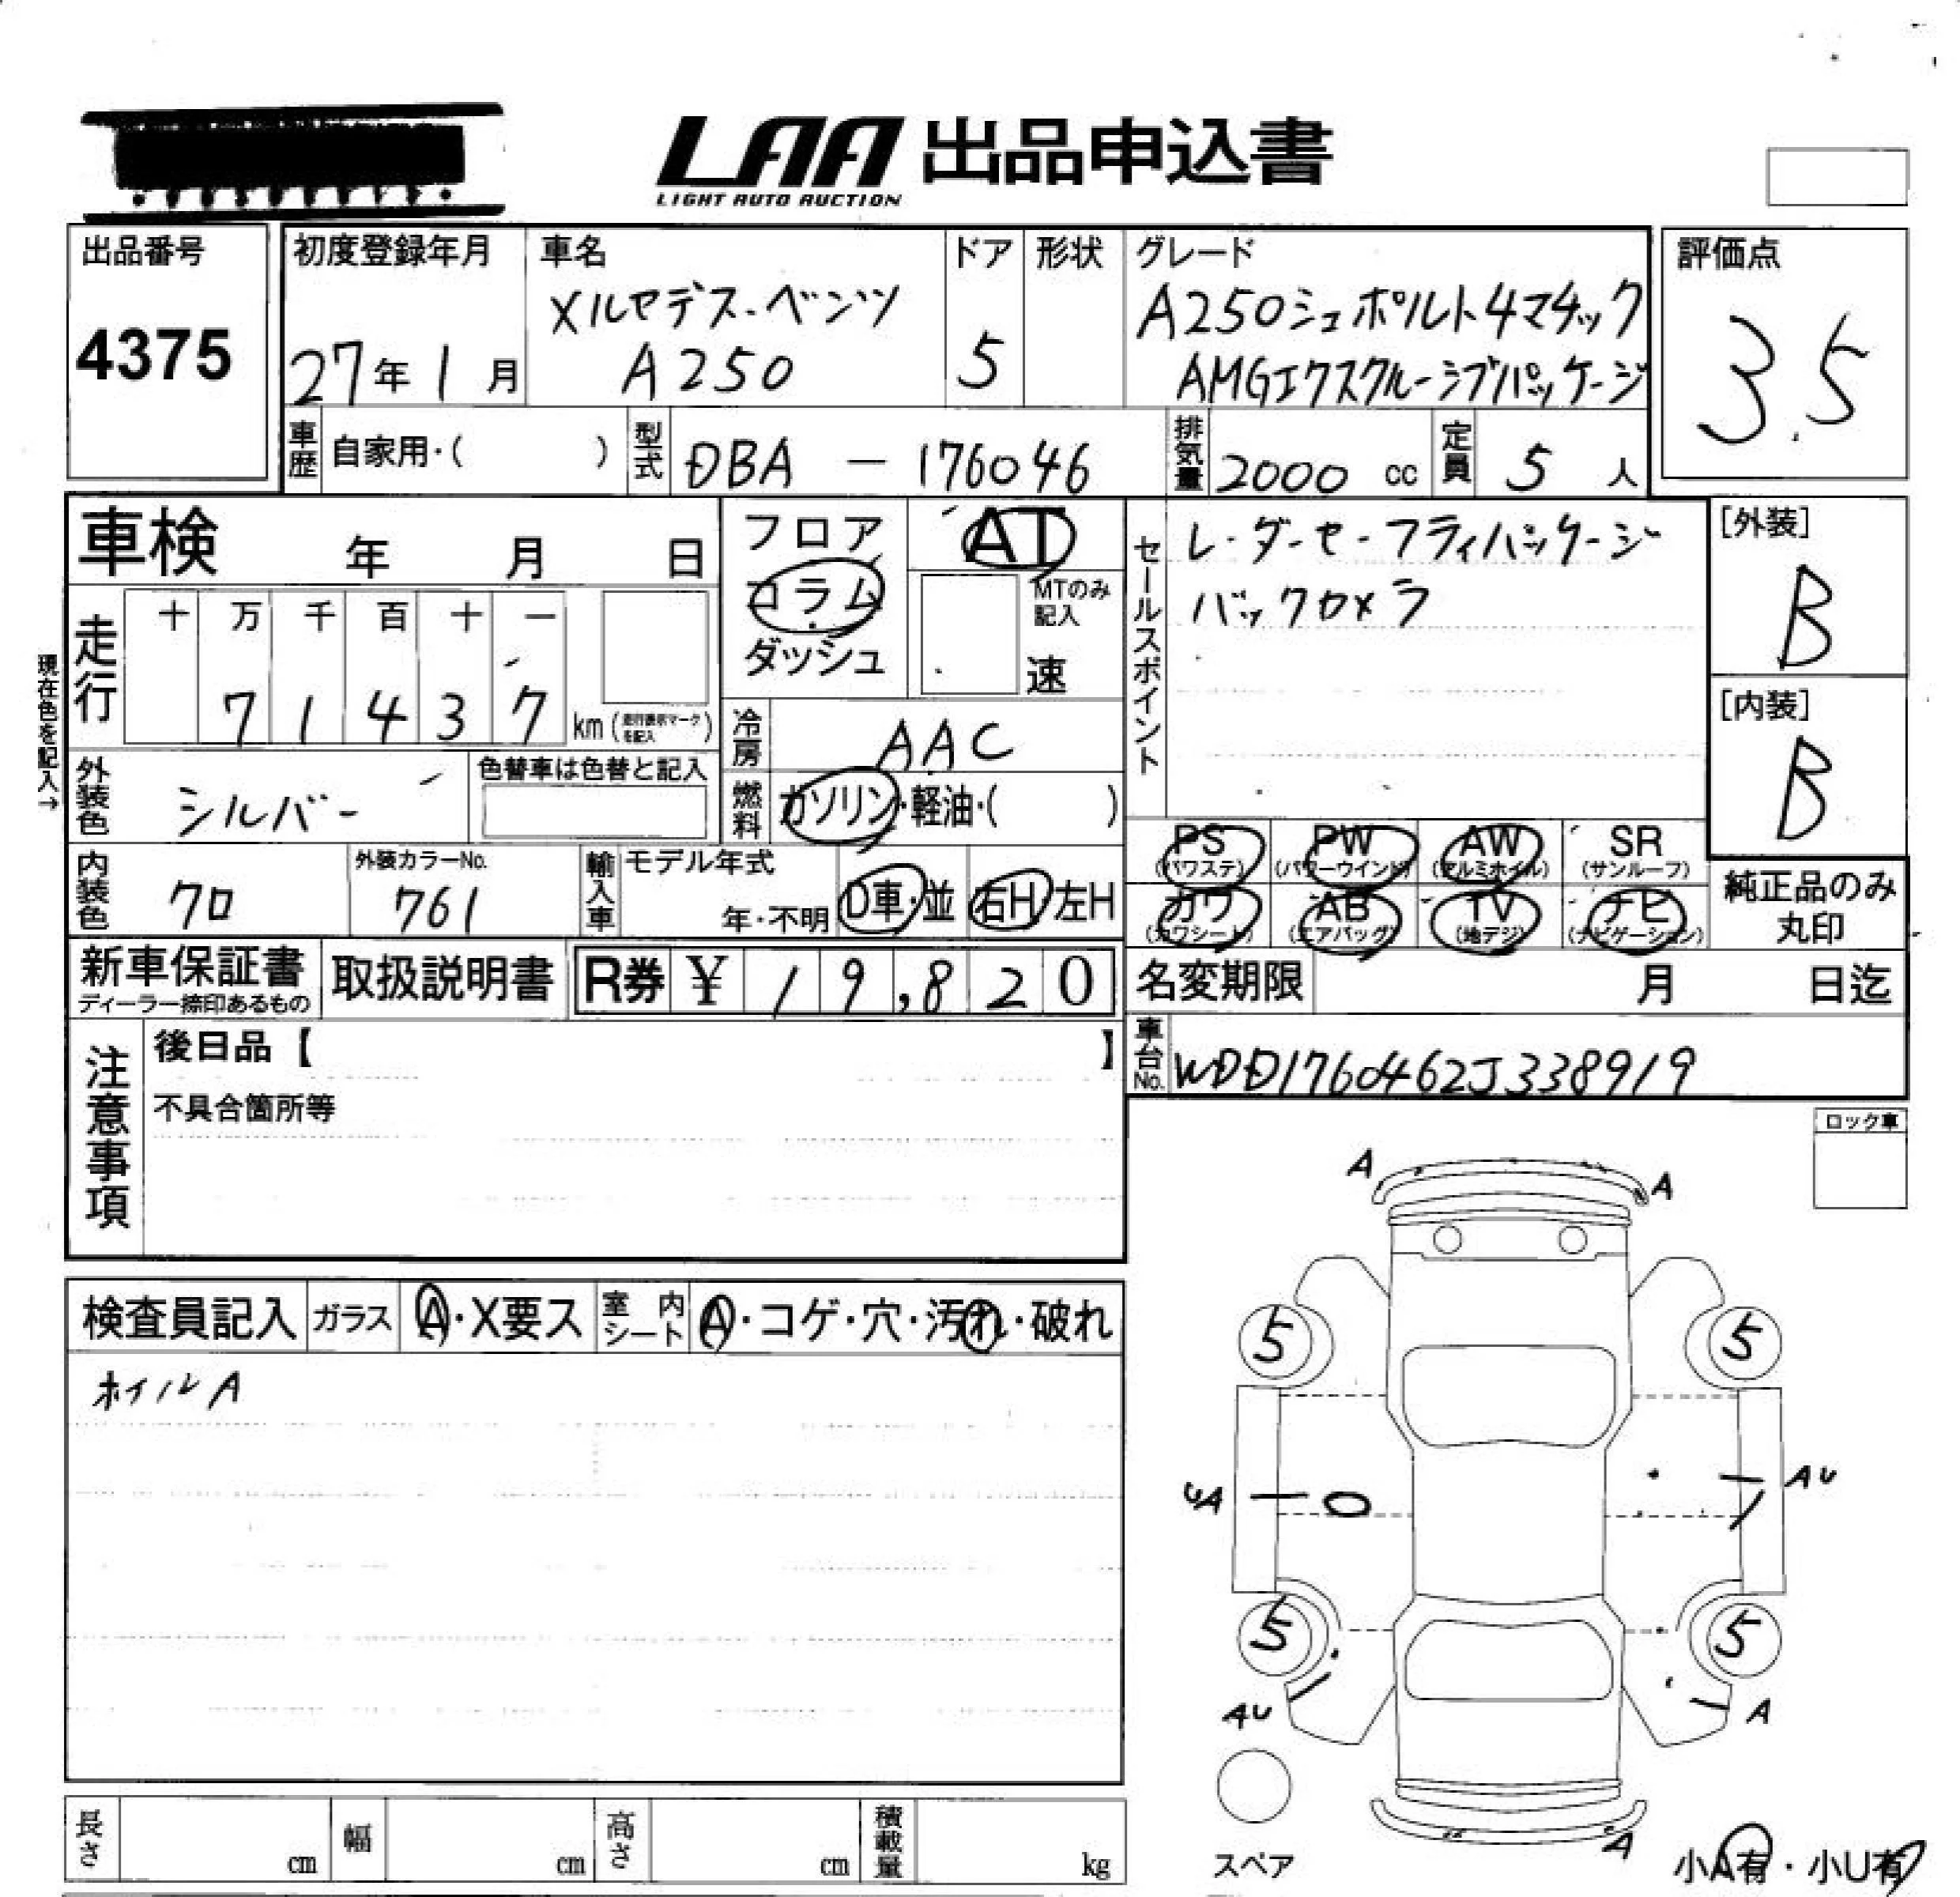 LAA 出品申込書
LIGHT AUTO AUCTION
出品番号
4375
初度登録年月
27年1月
車名
メルセデス-ベンツ
A250
ドア
5
形状
グレード
A250シュポルト4マチック
AMGエクスクルーシブパッケージ
評価点
3.5
車歴
自家用・( )
型式
DBA - 176046
排気量
2000 cc
定員
5 人
車検 年 月 日
フロア
コラム
ダッシュ
AT
MTのみ
記入
速
セールスポイント
レーダーセーフティパッケージ
バックカメラ
[外装]
B
[内装]
B
現在色を記入→
走行
十 万 千 百 十 一
7 1 4 3 7
km (走行表示マークを記入)
冷房
AAC
外装色
シルバー
色替車は色替と記入
燃料
ガソリン・軽油・( )
PS
(パワステ)
PW
(パワーウインド)
AW
(アルミホイル)
SR
(サンルーフ)
カワ
(カワシート)
AB
(エアバッグ)
TV
(地デジ)
ナビ
(ナビゲーション)
純正品のみ
丸印
内装色
クロ
外装カラーNo.
761
輸入車
モデル年式
年・不明
D車・並
右H/左H
新車保証書
ディーラー捺印あるもの
取扱説明書
R券 ¥ 19,820
名変期限 月 日迄
車台No.
WDD1760462J338919
注意事項
後日品【 】
不具合箇所等
ロック車
検査員記入
ガラス
A・X要ス
室内シート
A・コゲ・穴・汚れ・破れ
ホイルA
A
A
5
5
UA
AU
5
5
AU
A
A
スペア
小A有・小U有
長さ
cm
幅
cm
高さ
cm
積載量
kg